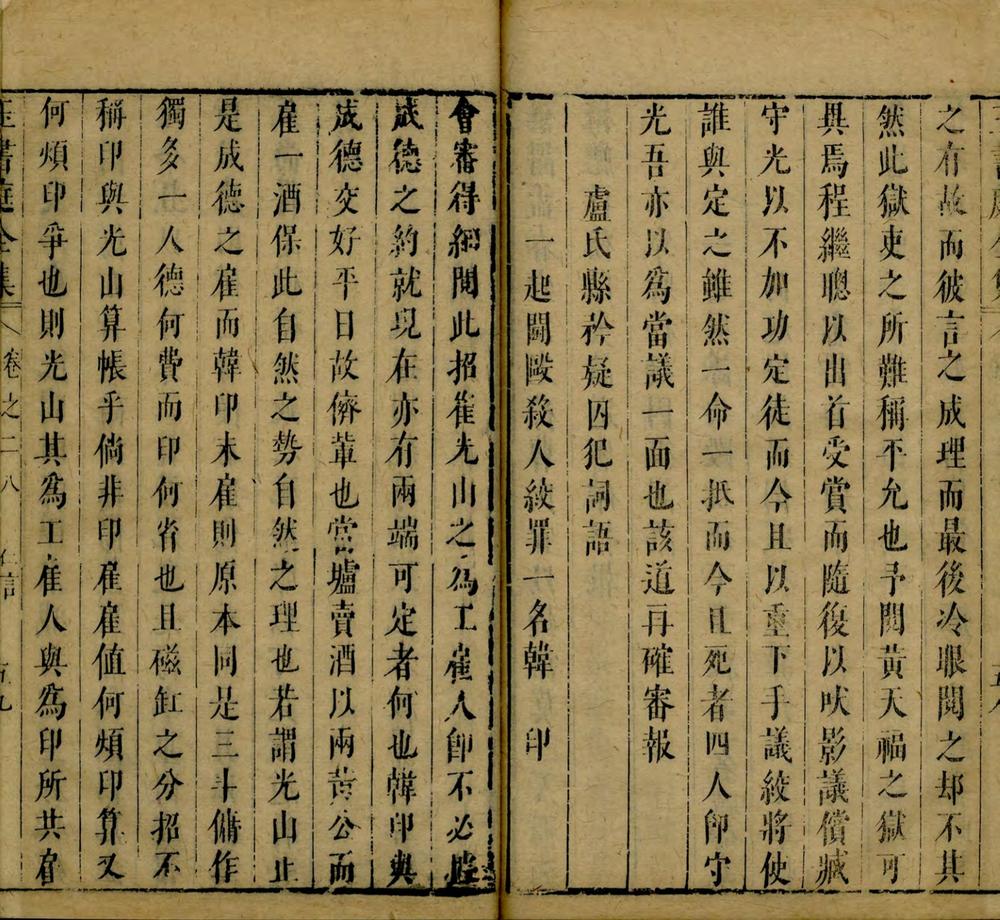 之有故而彼言之成理而最後冷眼閱之却不其
然此獄吏之所難稱平允也予閱黃天福之獄可
異焉程繼聰以出首受賞而隨復以吠影議償臧
守光以不加功定徒而今且以重下手議絞將使
誰與定之雖然一命一抵而今且死者四人卽守
光吾亦以爲當議一面也該道再確審報
盧氏縣矜疑囚犯詞語
一起鬭毆殺人絞罪一名韓印
會審得細閱此招崔光山之爲工雇人卽不必據
成德之約就現在亦有兩端可定者何也韓印與
成德交好平日故儕輩也當壚賣酒以兩黃公而
雇一酒保此自然之勢自然之理也若謂光山止
是成德之雇而韓印未雇則原本同是三斗傭作
獨多一人德何費而印何省也且磁缸之分招不
稱印與光山算帳乎倘非印雇雇值何煩印算又
何煩印爭也則光山其爲工雇人與爲印所共雇
全集 卷之二八